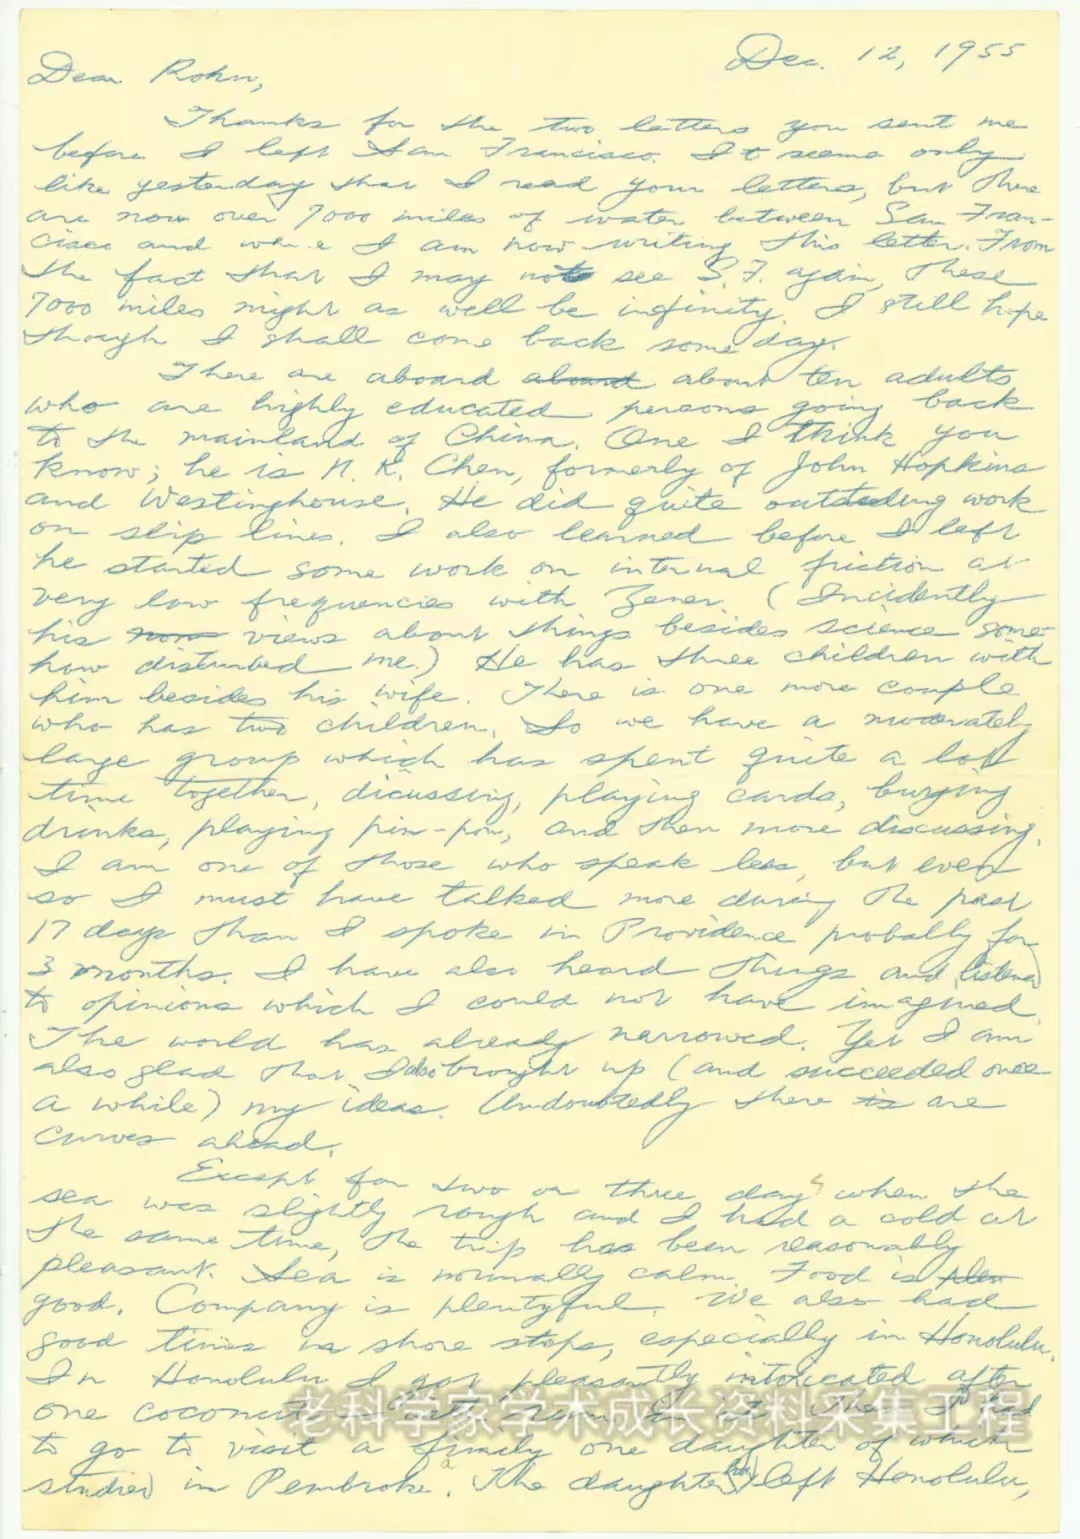 Dec. 12, 1955
Dear Rohn,
Thanks for the two letters you sent me
before I left San Francisco. It seems only
like yesterday that I read your letters, but there
are now over 7000 miles of water between San Fran-
cisco and where I am now writing this letter. From
the fact that I may not see S.F. again, these
7000 miles might as well be infinity. I still hope
though I shall come back some day.
There are aboard aboard about ten adults
who are highly educated persons going back
to the mainland of China. One I think you
know; he is N. K. Chen, formerly of John Hopkins
and Westinghouse. He did quite outstanding work
on slip lines. I also learned before I left
he started some work on internal friction at
very low frequencies with Zener. (Incidently
his views about things besides science some-
how disturbed me.) He has three children with
him besides his wife. There is one more couple
who has two children. So we have a moderately
large group which has spent quite a lot
time together, dicussing, playing cards, buying
drinks, playing pin-pon, and then more discussing.
I am one of those who speak less, but even
so I must have talked more during the past
17 days than I spoke in Providence probally for
3 months. I have also heard things and listened
to opinions which I could not have imagined.
The world has already narrowed. Yet I am
also glad that I also brought up (and succeeded once
a while) my ideas. Undoubtedly there is are
curves ahead.
Except for two or three days when the
sea was slightly rough and I had a cold at
the same time, the trip has been reasonably
pleasant. Sea is normally calm. Food is
good. Company is plentyful. We also had
good times in shore stops, especially in Honolulu.
In Honolulu I got pleasantly intoxicated after
one coconut rum in it. Then I had
to go to visit a family one daughter of which
studied in Pembroke. The daughter had left Honolulu,
老科学家学术成长资料采集工程